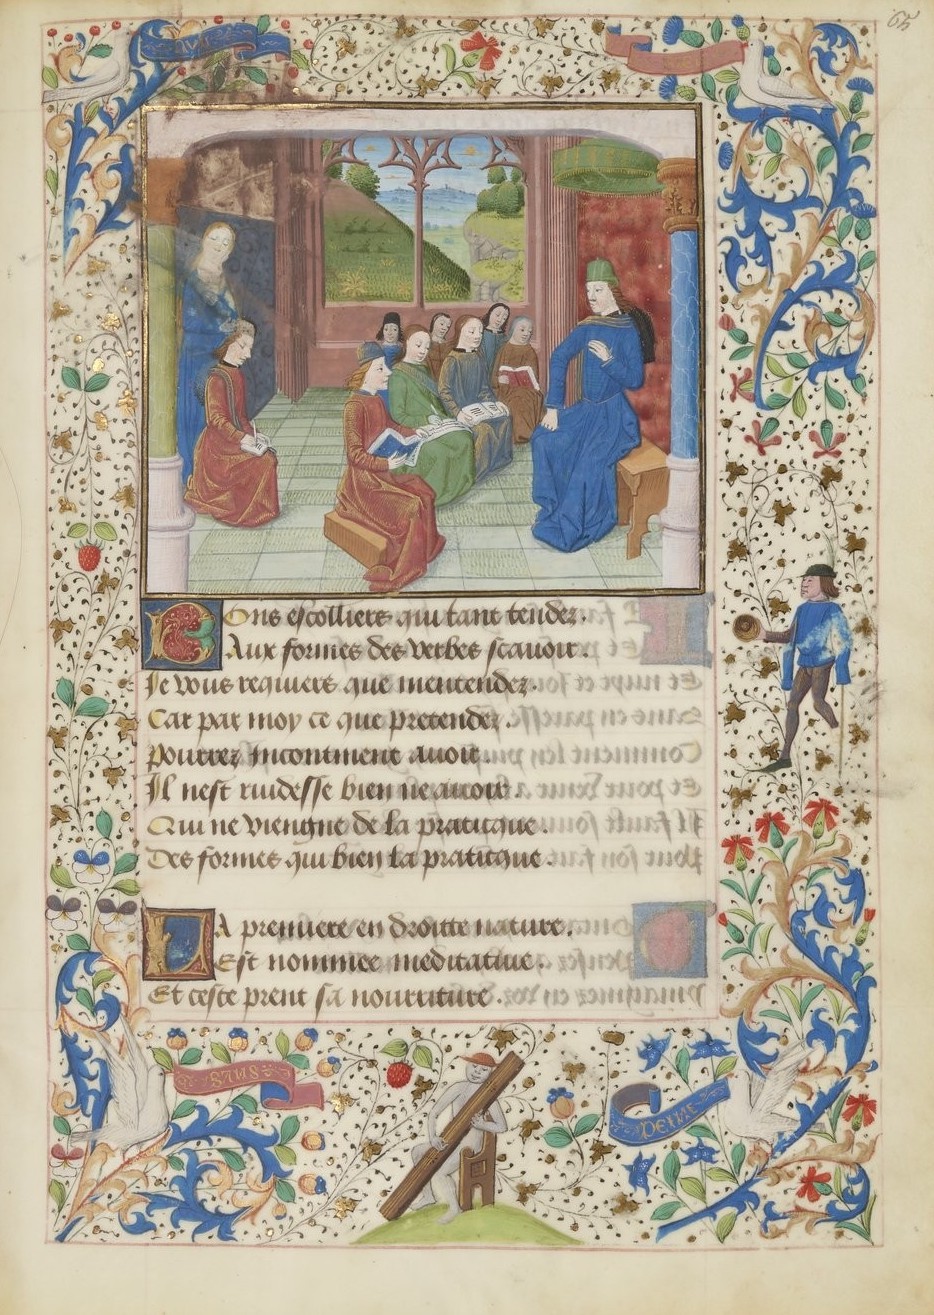 65
Bons escolliers qui tant tendez.
Aux formes des verbes scauoir.
Je vous requiers que mentendez.
Car par moy ce que pretendez.
Pourrez incontinent auoir.
Il nest rudesse bien ne auoir.
Qui ne viengne de la praticque.
Des formes qui bien la praticque.
LA premiere en droitte nature.
Est nommee meditatiue.
Et ceste prent sa nourriture.
SANS
PEINE